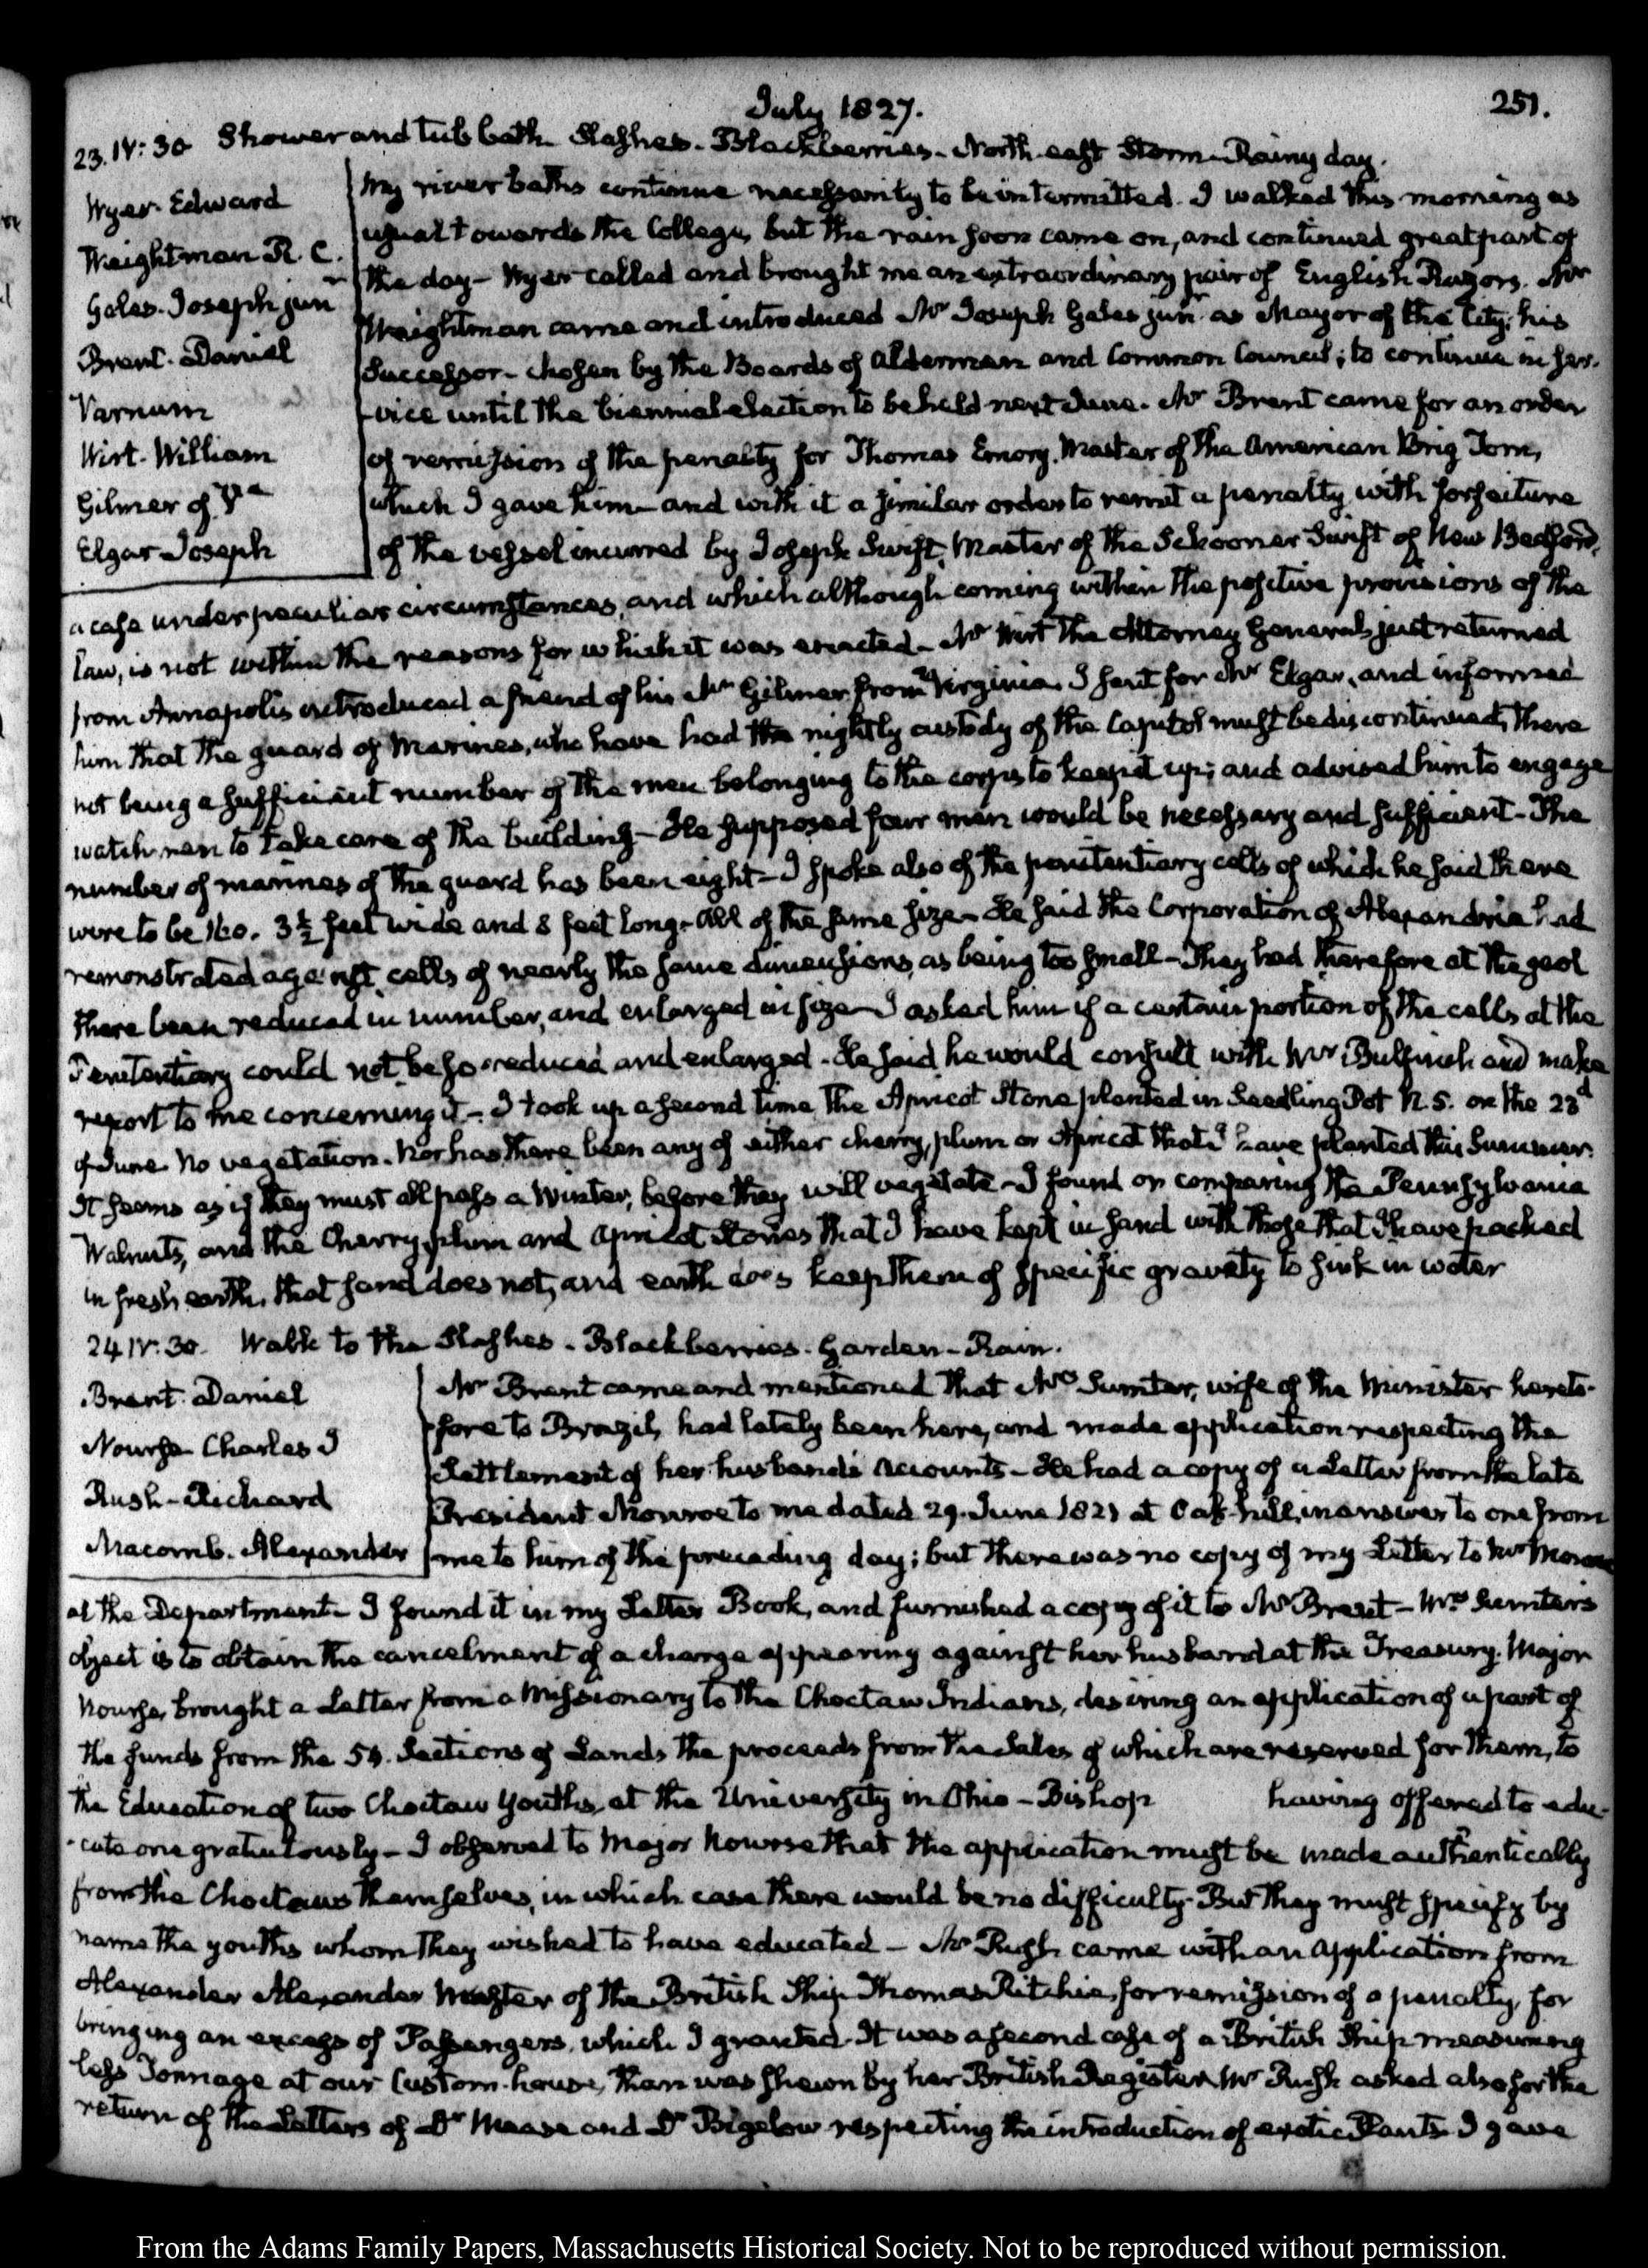 July 1827.
251.
23. IV: 30 Shower and tub bath. Slashes. Blackberries. North-east Storm. Rainy day.
Wyer. Edward
Weightman R. C.
Gales. Joseph junr
Brent. Daniel
Varnum
Wirt. William
Gilmer of Va
Elgar Joseph
My river baths continue necessarily to be intermitted. I walked this morning as
usual towards the College, but the rain soon came on, and continued great part of
the day — Wyer called and brought me an extraordinary pair of English Razors. Mr
Weightman came and introduced Mr Joseph Gales junr as Mayor of the City; his
Successor — chosen by the Boards of Aldermen and Common Council; to continue in ser-
vice until the biennial election to be held next June. Mr Brent came for an order
of remission of the penalty for Thomas Emory, Master of the American Brig Tom,
which I gave him — and with it a similar order to remit a penalty with forfeiture
of the vessel incurred by Joseph Swift, Master of the Schooner Swift of New Bedford,
a case under peculiar circumstances, and which although coming within the positive provisions of the
Law, is not within the reasons for which it was enacted — Mr Wirt the Attorney General just returned
from Annapolis introduced a friend of his Mr Gilmer from Virginia. I sent for Mr Elgar, and informed
him that the guard of Marines, who have had the nightly custody of the Capitol must be discontinued, there
not being a sufficient number of the men belonging to the corps to keep it up; and advised him to engage
watchmen to take care of the building — He supposed four men would be necessary and sufficient — The
number of marines of the guard has been eight — I spoke also of the penitentiary cells of which he said there
were to be 160. 3½ feet wide and 8 feet long — all of the same size — He said the Corporation of Alexandria had
remonstrated against cells of nearly the same dimensions, as being too small — They had therefore at the gaol
there been reduced in number, and enlarged in size — I asked him if a certain portion of the cells at the
Penitentiary could not be so reduced and enlarged — He said he would consult with Mr Bulfinch and make
report to me concerning it — I took up a second time the Apricot Stone planted in Seedling Pot N. 5. on the 23d
of June. No vegetation. Nor has there been any of either cherry, plum or Apricot that I have planted this Summer.
It seems as if they must all pass a Winter, before they will vegetate — I found on comparing the Pennsylvania
Walnuts, and the Cherry, plum and apricot Stones that I have kept in sand with those that I have packed
in fresh earth, that sand does not, and earth does keep them of specific gravity to sink in water
24 IV. 30. Walk to the Slashes. Blackberries. Garden — Rain.
Brent. Daniel
Nourse Charles J
Rush — Richard
Macomb. Alexander
Mr Brent came and mentioned that Mrs Sumter, wife of the Minister hereto-
fore to Brazil, had lately been here, and made application respecting the
Settlement of her husband's accounts — He had a copy of a Letter from the late
President Monroe to me dated 29. June 1821 at Oak-hill, in answer to one from
me to him of the preceding day; but there was no copy of my Letter to Mr Monroe
at the Department. I found it in my Letter Book, and furnished a copy of it to Mr Brent — Mrs Sumter's
object is to obtain the cancelment of a charge appearing against her husband at the Treasury. Major
Nourse, brought a Letter from a Missionary to the Choctaw Indians, desiring an application of a part of
the funds from the 54. Sections of Lands the proceeds from the Sales of which are reserved for them, to
the Education of two Choctaw Youths, at the University in Ohio — Bishop having offered to edu-
-cate one gratuitously — I observed to Major Nourse that the application must be made authentically
from the Choctaws themselves, in which case there would be no difficulty. But they must specify by
name the youths whom they wished to have educated — Mr Rush came with an application from
Alexander Alexander Master of the British Ship Thomas Ritchie, for remission of a penalty, for
bringing an excess of Passengers, which I granted. It was a second case of a British Ship measuring
less Tonnage at our Custom-house, than was shewn by her British Register. Mr Rush asked also for the
return of the Letters of Dr Mease and Dr Bigelow respecting the introduction of exotic Plants. I gave
From the Adams Family Papers, Massachusetts Historical Society. Not to be reproduced without permission.